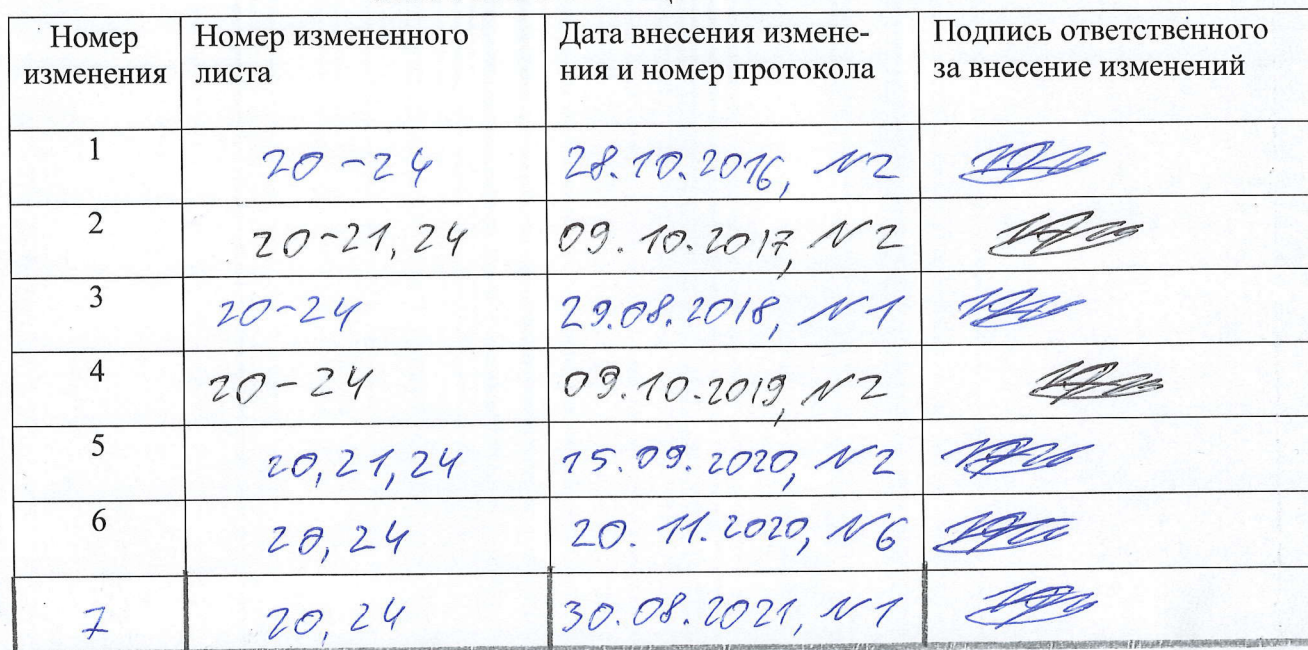 Номер изменения | Номер измененного листа | Дата внесения измене-ния и номер протокола | Подпись ответственного за внесение изменений
1 | 20-24 | 28.10.2016, N2
2 | 20-21, 24 | 09.10.2017, N2
3 | 20-24 | 29.08.2018, N1
4 | 20-24 | 09.10.2019, N2
5 | 20, 21, 24 | 15.09.2020, N2
6 | 20, 24 | 20.11.2020, N6
7 | 20, 24 | 30.08.2021, N1